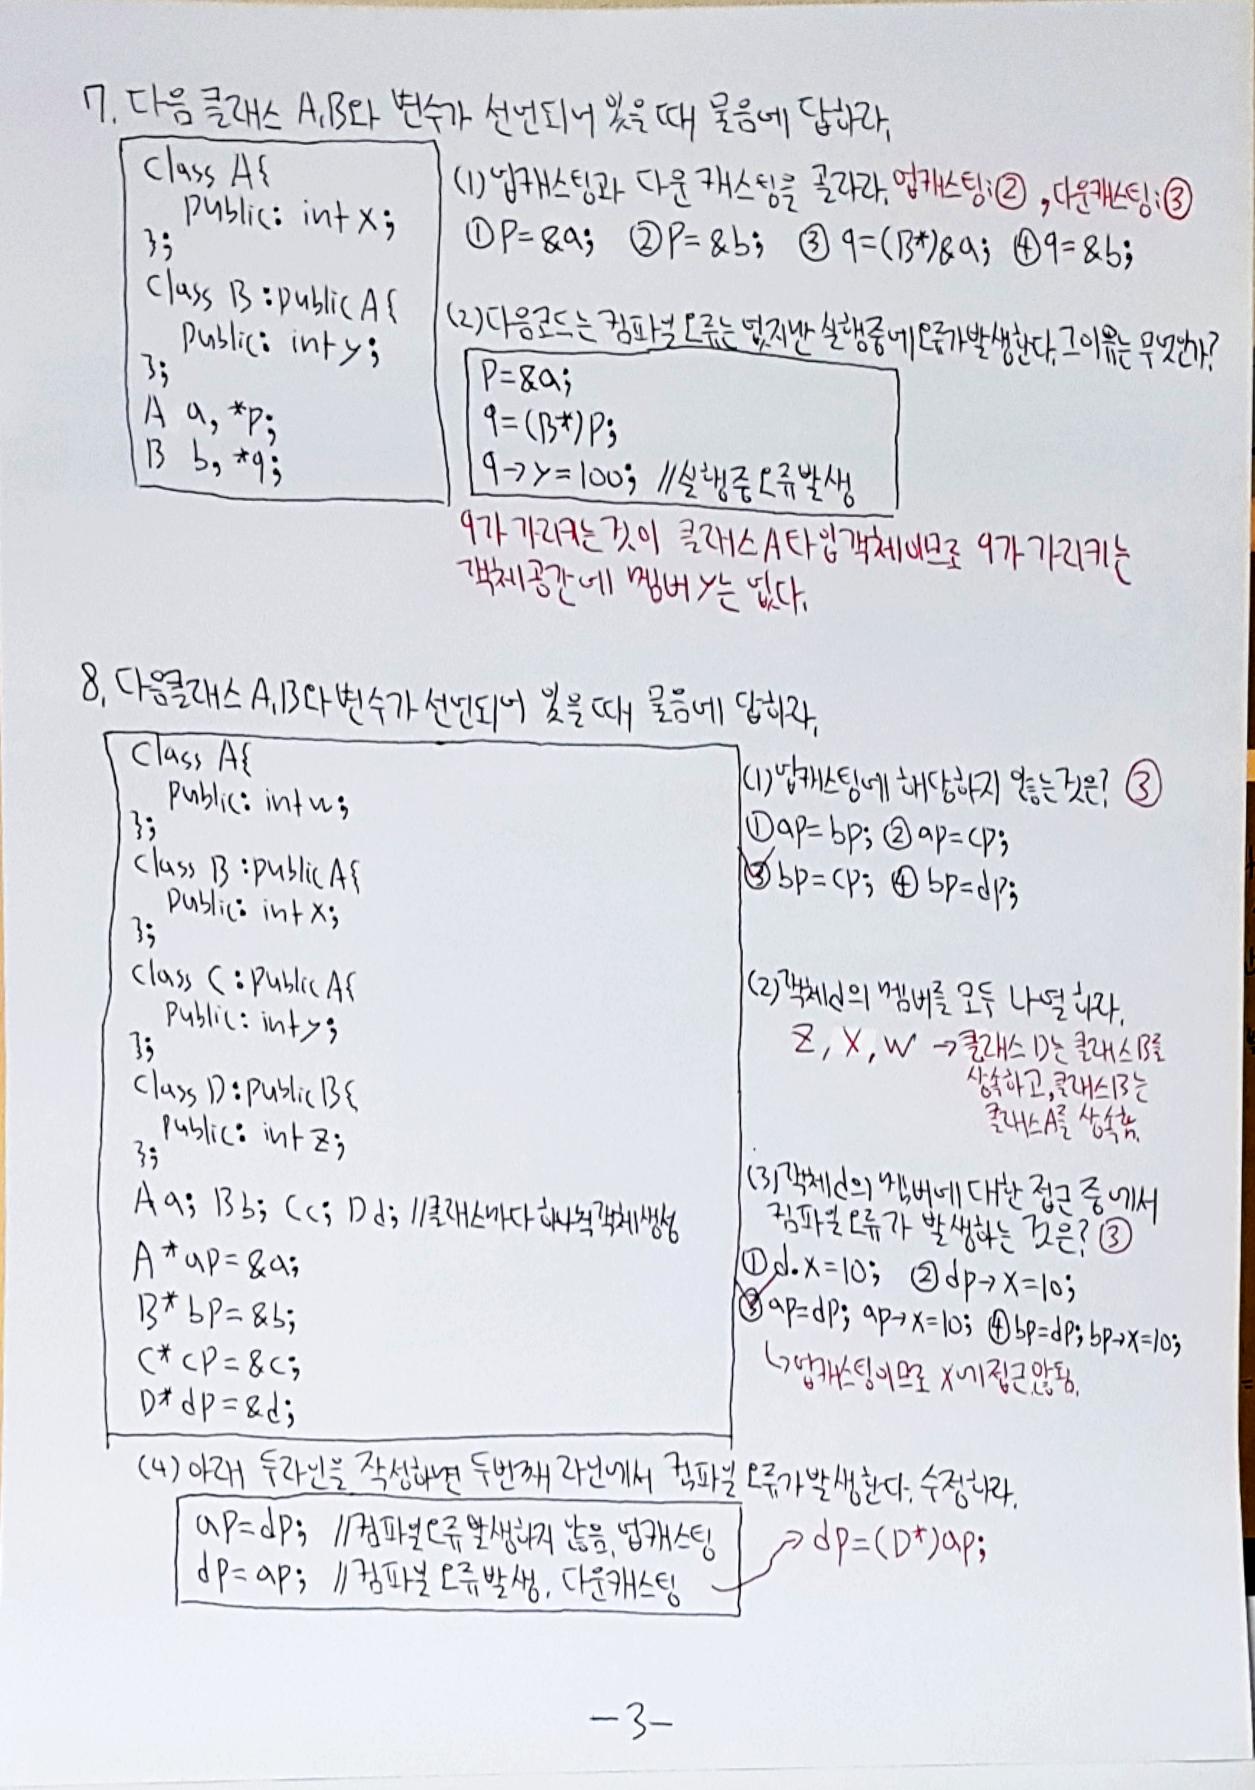 7. 다음 클래스 A,B와 변수가 선언되어 있을 때 물음에 답하라.
class A{
public: int x;
};
class B : public A{
public: int y;
};
A a, *p;
B b, *q;
(1) 업캐스팅과 다운 캐스팅을 골라라. 업캐스팅:②, 다운캐스팅:③
① p=&a; ② p=&b; ③ q=(B*)&a; ④ q=&b;
(2) 다음코드는 컴파일 오류는 없지만 실행중에 오류가 발생한다. 그 이유는 무엇인가?
p=&a;
q=(B*)p;
q→y=100; //실행중 오류 발생
q가 가리키는 것이 클래스 A타입 객체이므로 q가 가리키는
객체 공간에 멤버 y는 없다.
8. 다음클래스 A,B와 변수가 선언되어 있을 때 물음에 답하라.
class A{
public: int w;
};
class B : public A{
public: int x;
};
class C : public A{
public: int y;
};
class D : public B{
public: int z;
};
A a; B b; C c; D d; //클래스마다 하나씩 객체 생성
A* ap=&a;
B* bp=&b;
C* cp=&c;
D* dp=&d;
(1) 업캐스팅에 해당하지 않는 것은? ③
① ap=bp; ② ap=cp;
③ bp=cp; ④ bp=dp;
(2) 객체 d의 멤버를 모두 나열하라.
z, x, w → 클래스 D는 클래스 B를
상속하고, 클래스 B는
클래스 A를 상속함.
(3) 객체 d의 멤버에 대한 접근 중에서
컴파일 오류가 발생하는 것은? ③
① d.x=10; ② dp→x=10;
③ ap=dp; ap→x=10; ④ bp=dp; bp→x=10;
↳업캐스팅이므로 x에 접근 안됨.
(4) 아래 두 라인을 작성하면 두번째 라인에서 컴파일 오류가 발생한다. 수정하라.
ap=dp; //컴파일 오류 발생하지 않음, 업캐스팅
dp=ap; //컴파일 오류 발생, 다운캐스팅 → dp=(D*)ap;
-3-